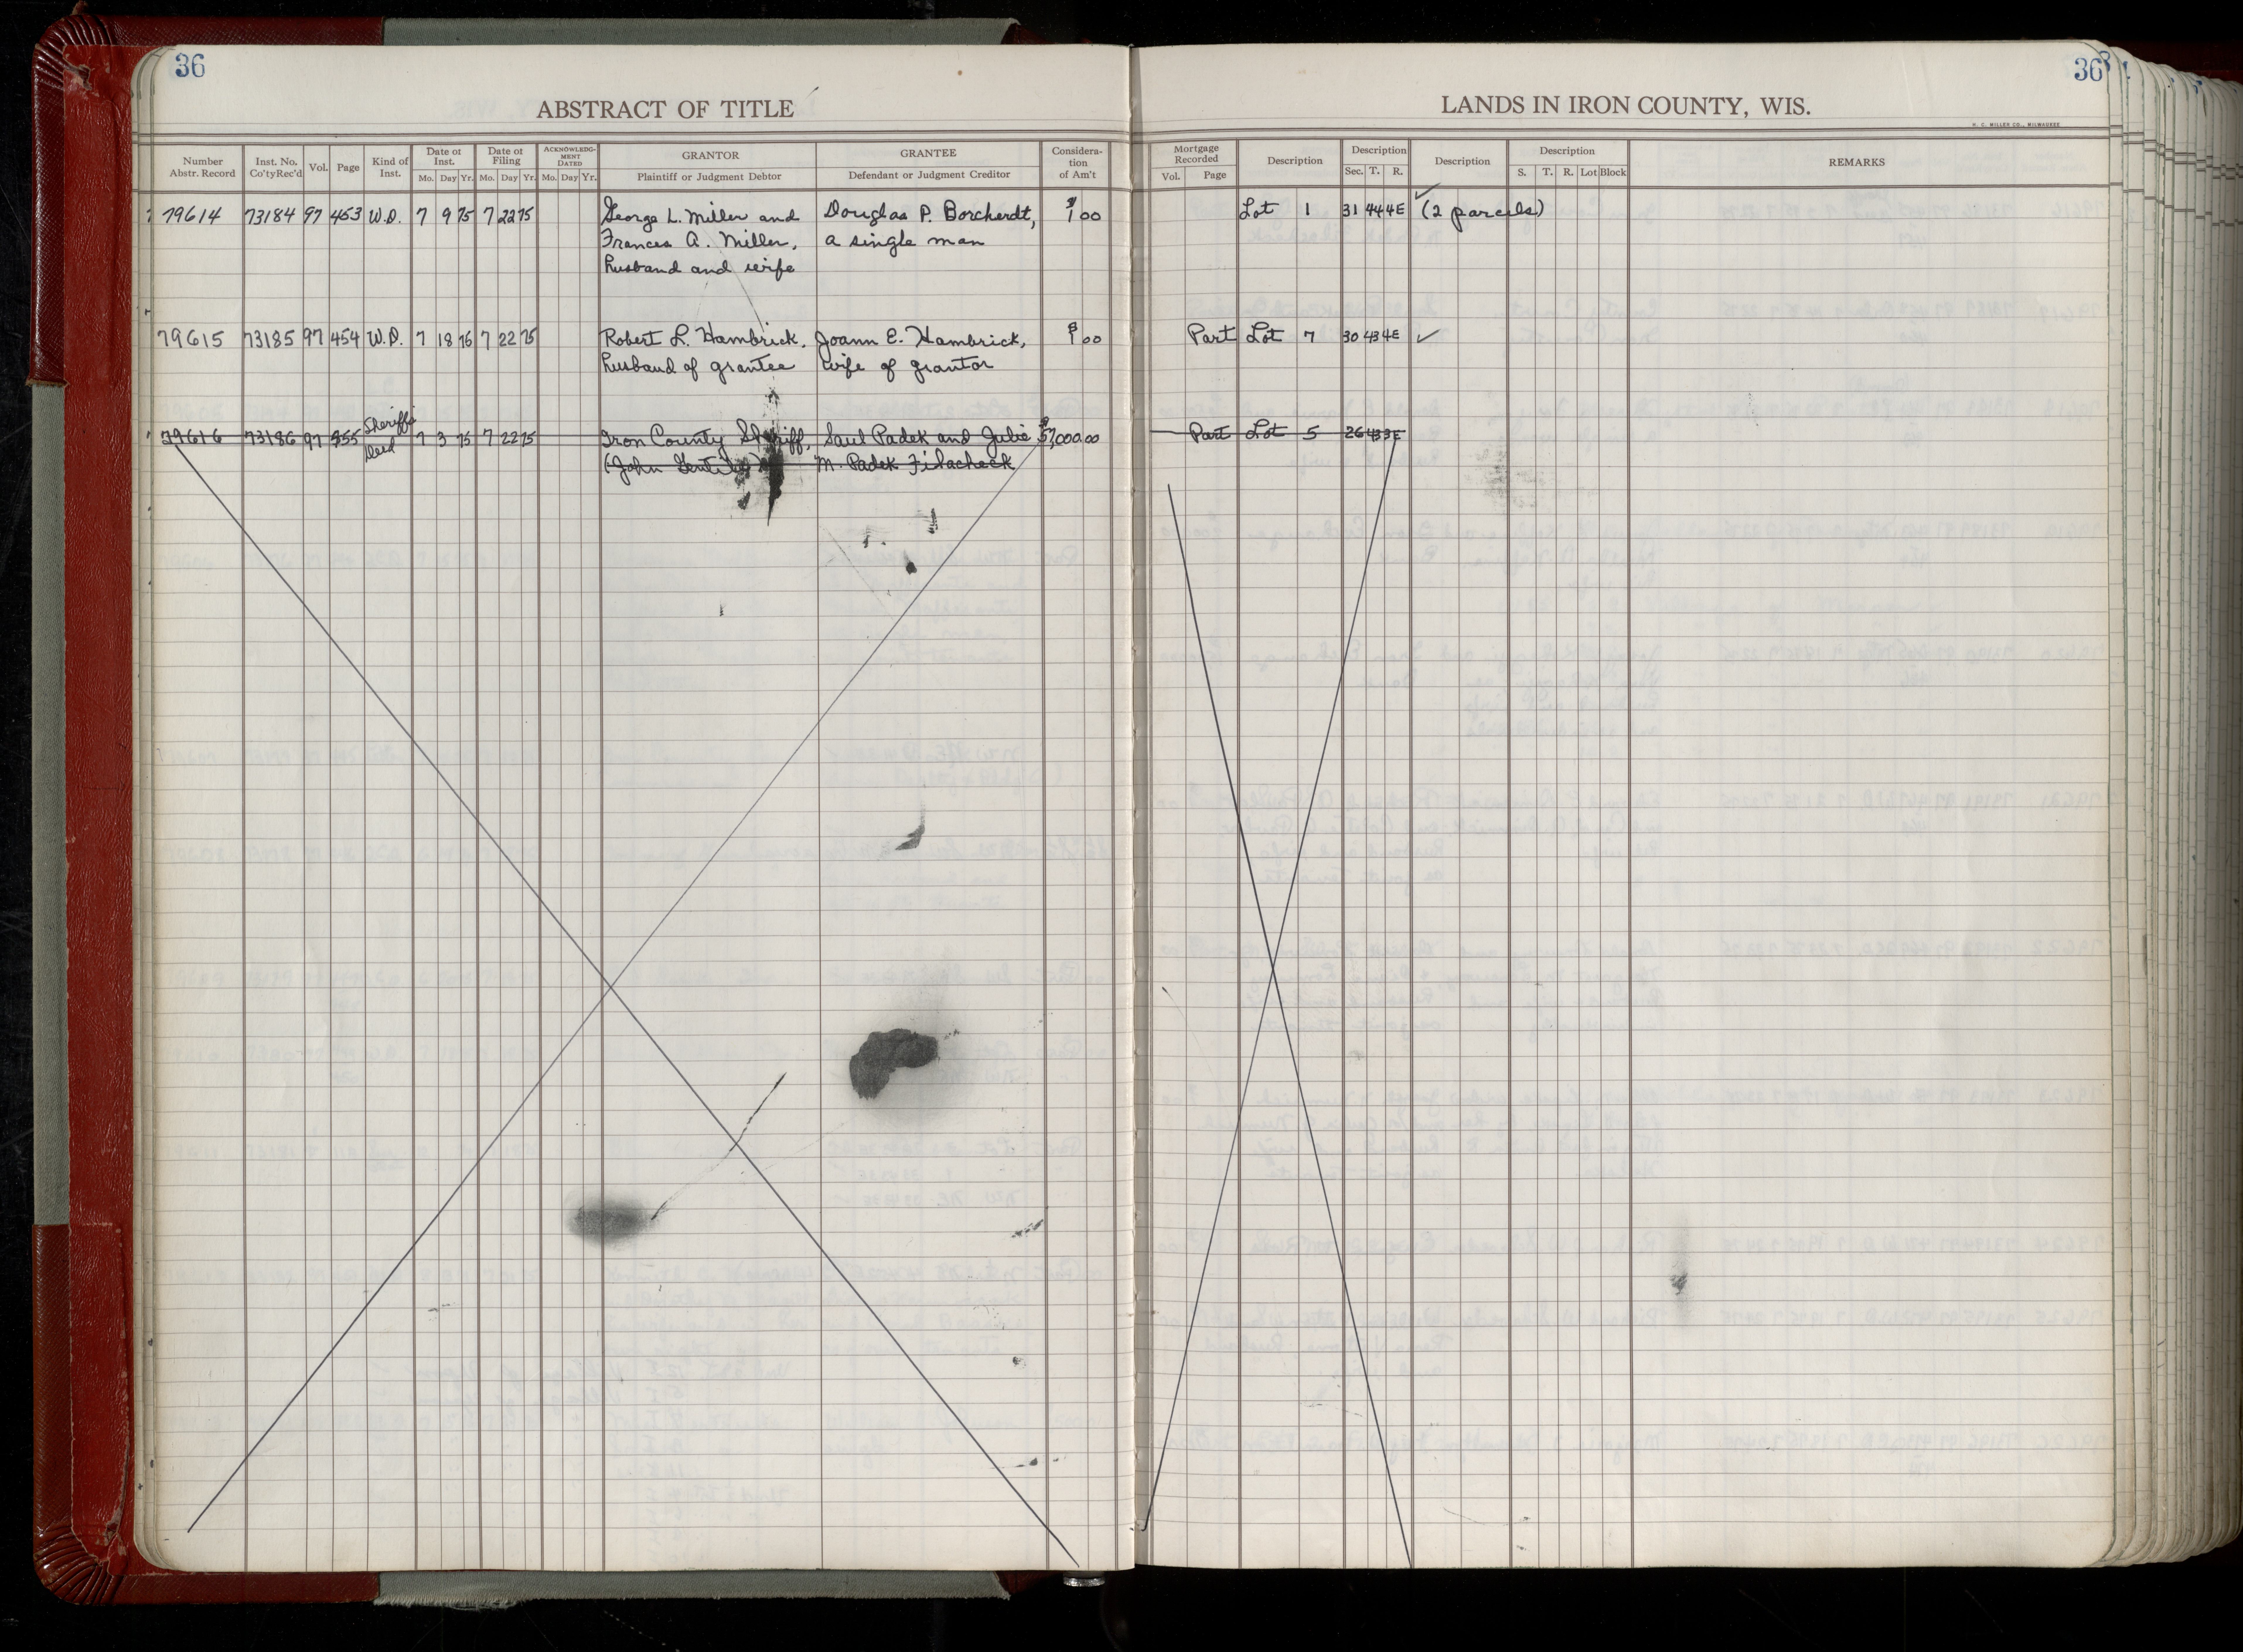 36
36
ABSTRACT OF TITLE
LANDS IN IRON COUNTY, WIS.
H. C. MILLER CO., MILWAUKEE
Number Abstr. Record | Inst. No. Co'ty Rec'd | Vol. | Page | Kind of Inst. | Date of Inst. Mo. Day Yr. | Date of Filing Mo. Day Yr. | ACKNOWLEDGMENT DATED Mo. Day Yr. | GRANTOR Plaintiff or Judgment Debtor | GRANTEE Defendant or Judgment Creditor | Consideration of Am't | Mortgage Recorded Vol. Page | Description | Description Sec. T. R. | Description | Description S. T. R. Lot Block | REMARKS
79614 73184 97 453 W.D. 7 9 75 7 22 75 George L. Miller and Douglas P. Borcherdt, $1 00 Lot 1 31 44 4E ✓ (2 parcels)
Frances A. Miller, a single man
husband and wife
79615 73185 97 454 W.D. 7 18 76 7 22 75 Robert L. Hambrick, Joann E. Hambrick, $1 00 Part Lot 7 30 43 4E ✓
husband of grantee wife of grantor
79616 73186 97 455 Sheriff's Deed 7 3 75 7 22 75 Iron County Sheriff, Saul Padek and Julie $7,000.00 Part Lot 5 26 43 3E
(John M. Padek Filacheck